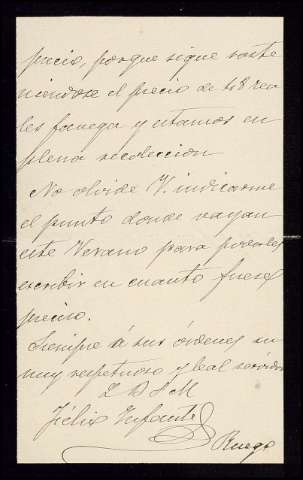 precio, porque sigue soste
niendose el precio de 48 rea
les fanega y estamos en
plena recoleccion
No olvide V. indicarme
el punto donde vayan
este Verano para poderles
escribir en cuanto fuese
preciso.
Siempre á sus órdenes su
muy respetuoso y leal servidor
Felix Infante